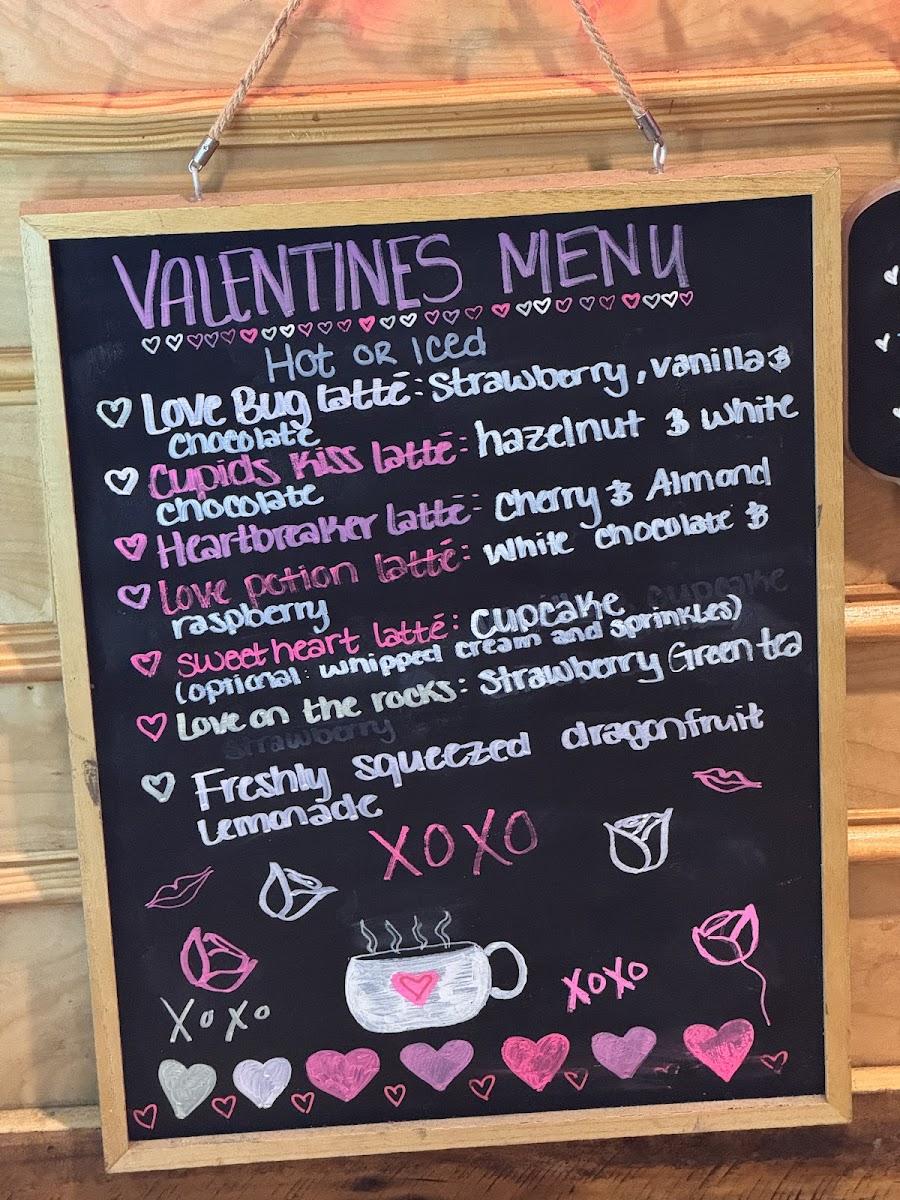 VALENTINES MENU
Hot OR Iced
Love Bug latté: Strawberry, vanilla &
chocolate
Cupids Kiss latté: hazelnut & white
chocolate
Heartbreaker latté: Cherry & Almond
Love potion latté: white chocolate &
raspberry
sweetheart latté: cupcake
(optional: whipped cream and sprinkles)
Love on the rocks: Strawberry Green tea
strawberry
Freshly squeezed dragonfruit
Lemonade
XOXO
XOXO
XOXO